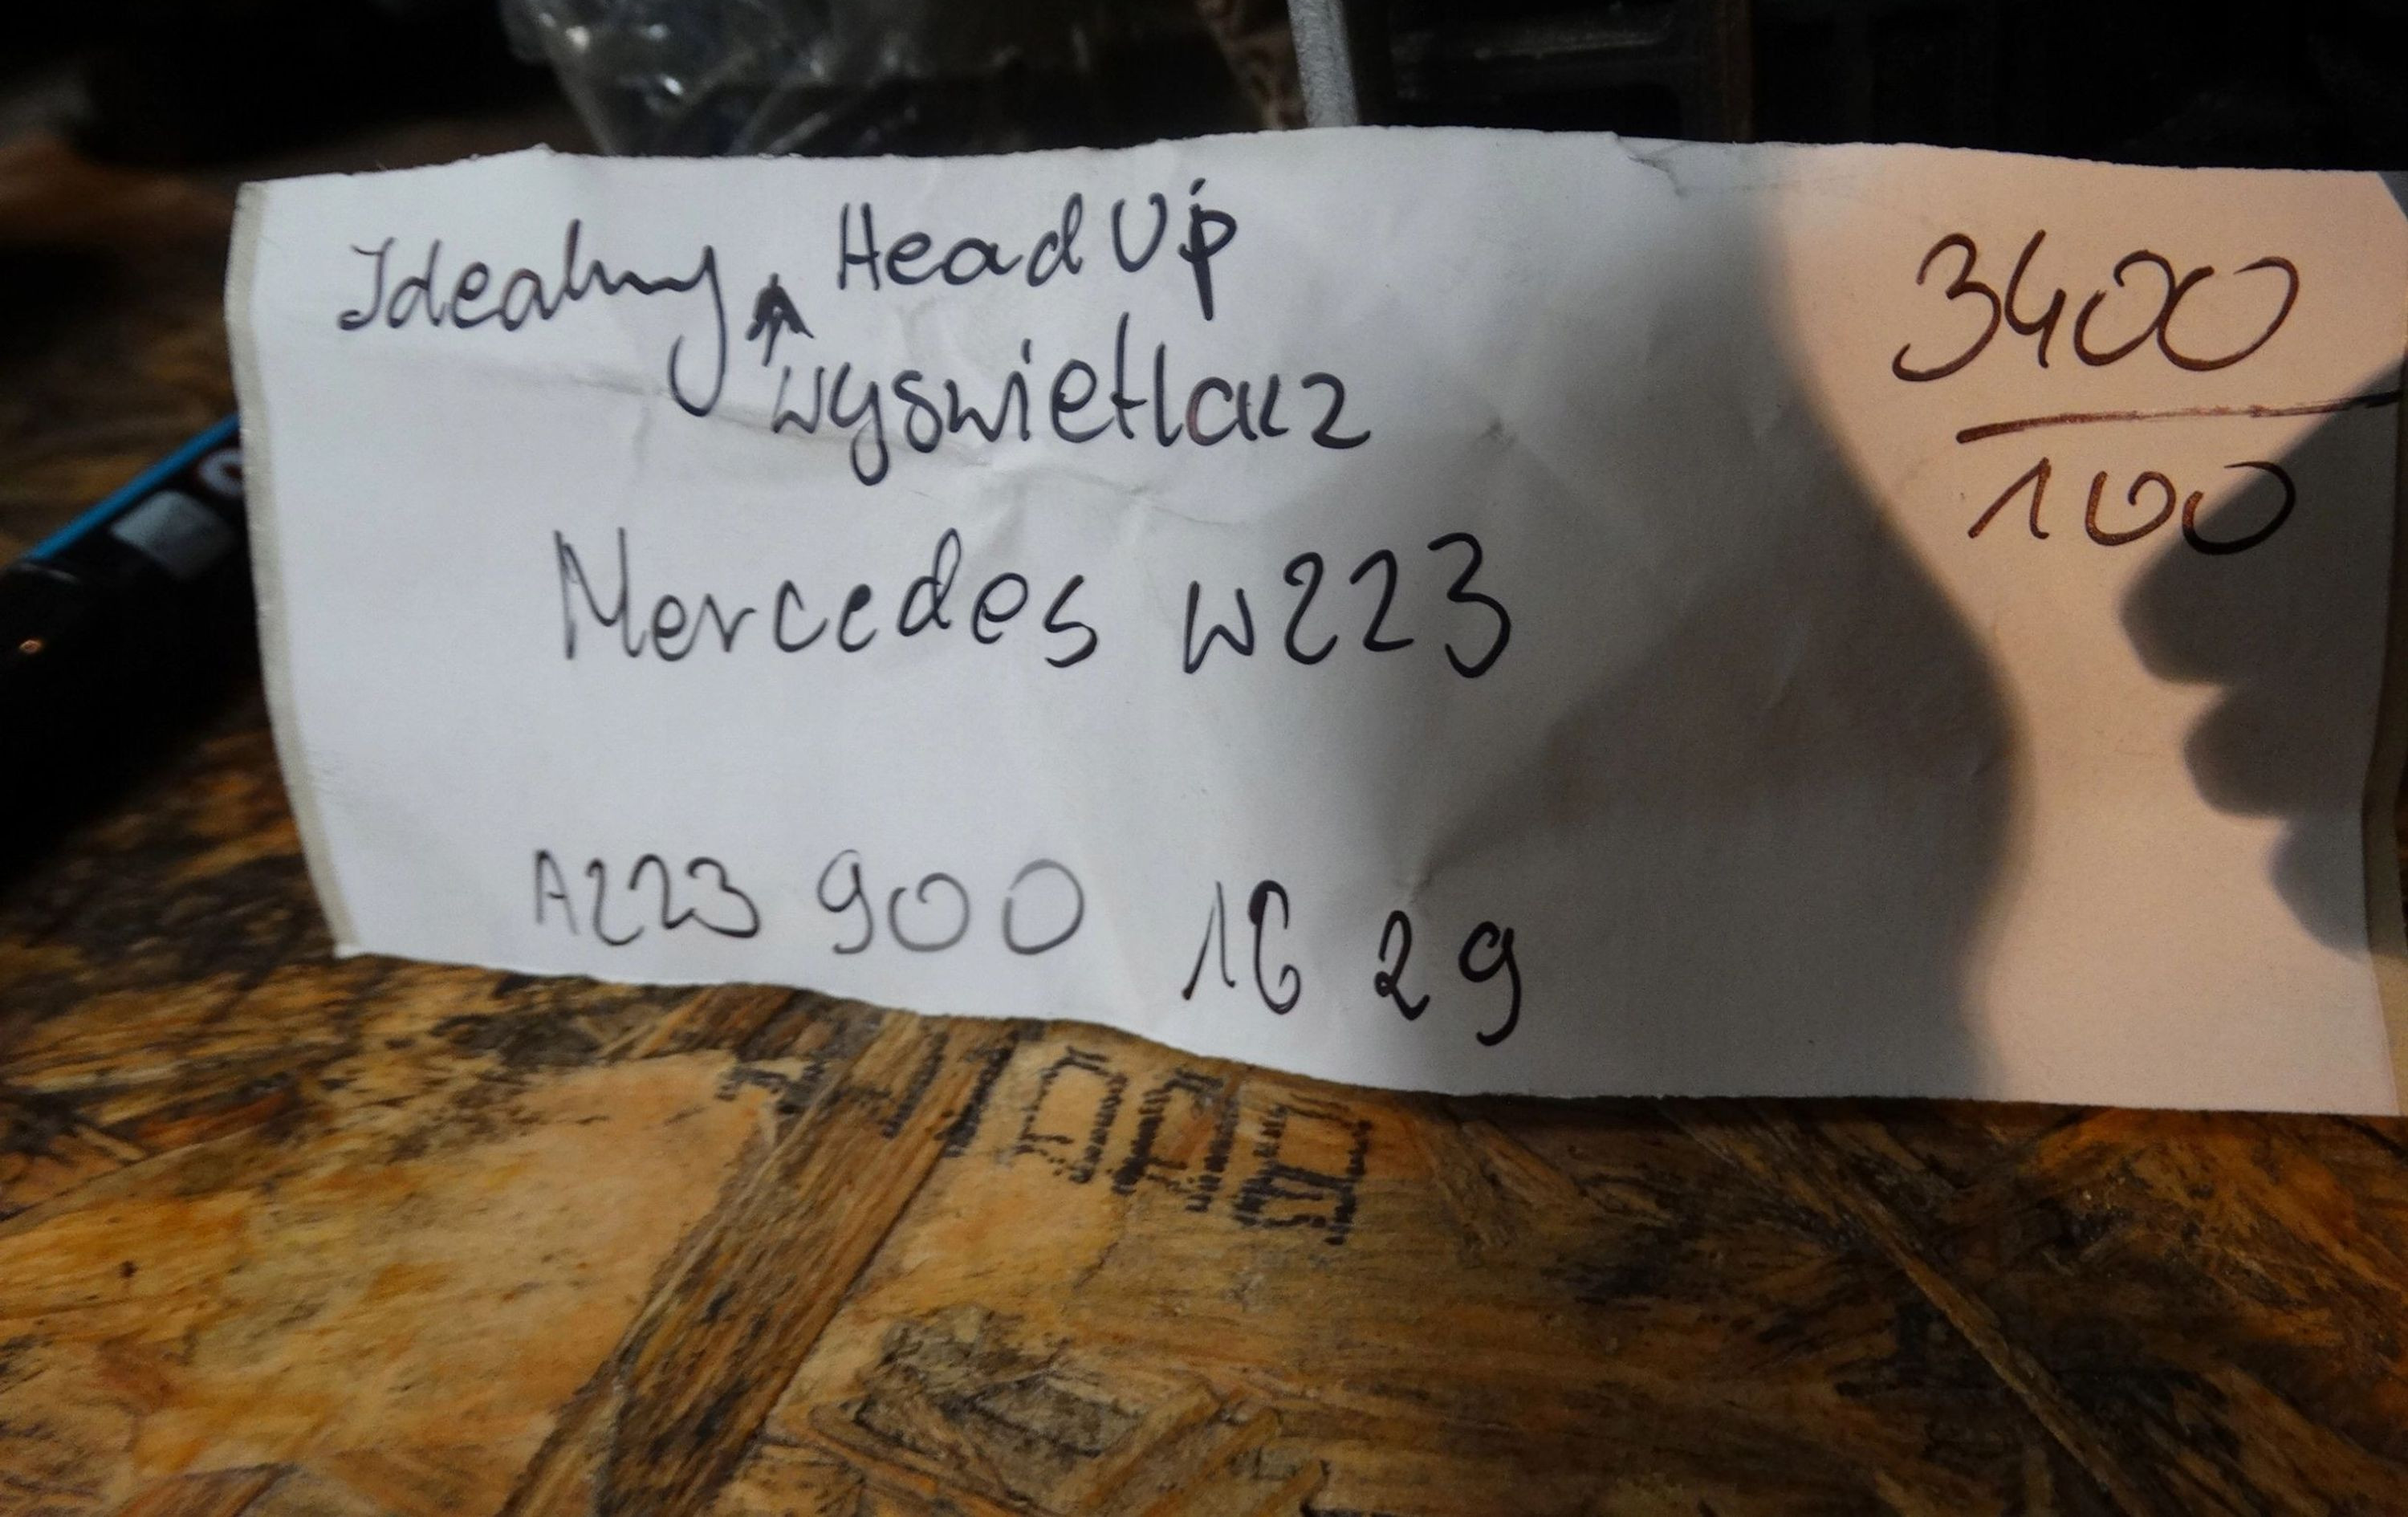 Idealny Head Up
wyświetlacz
Mercedes W223
A223 900 16 29
3400
100